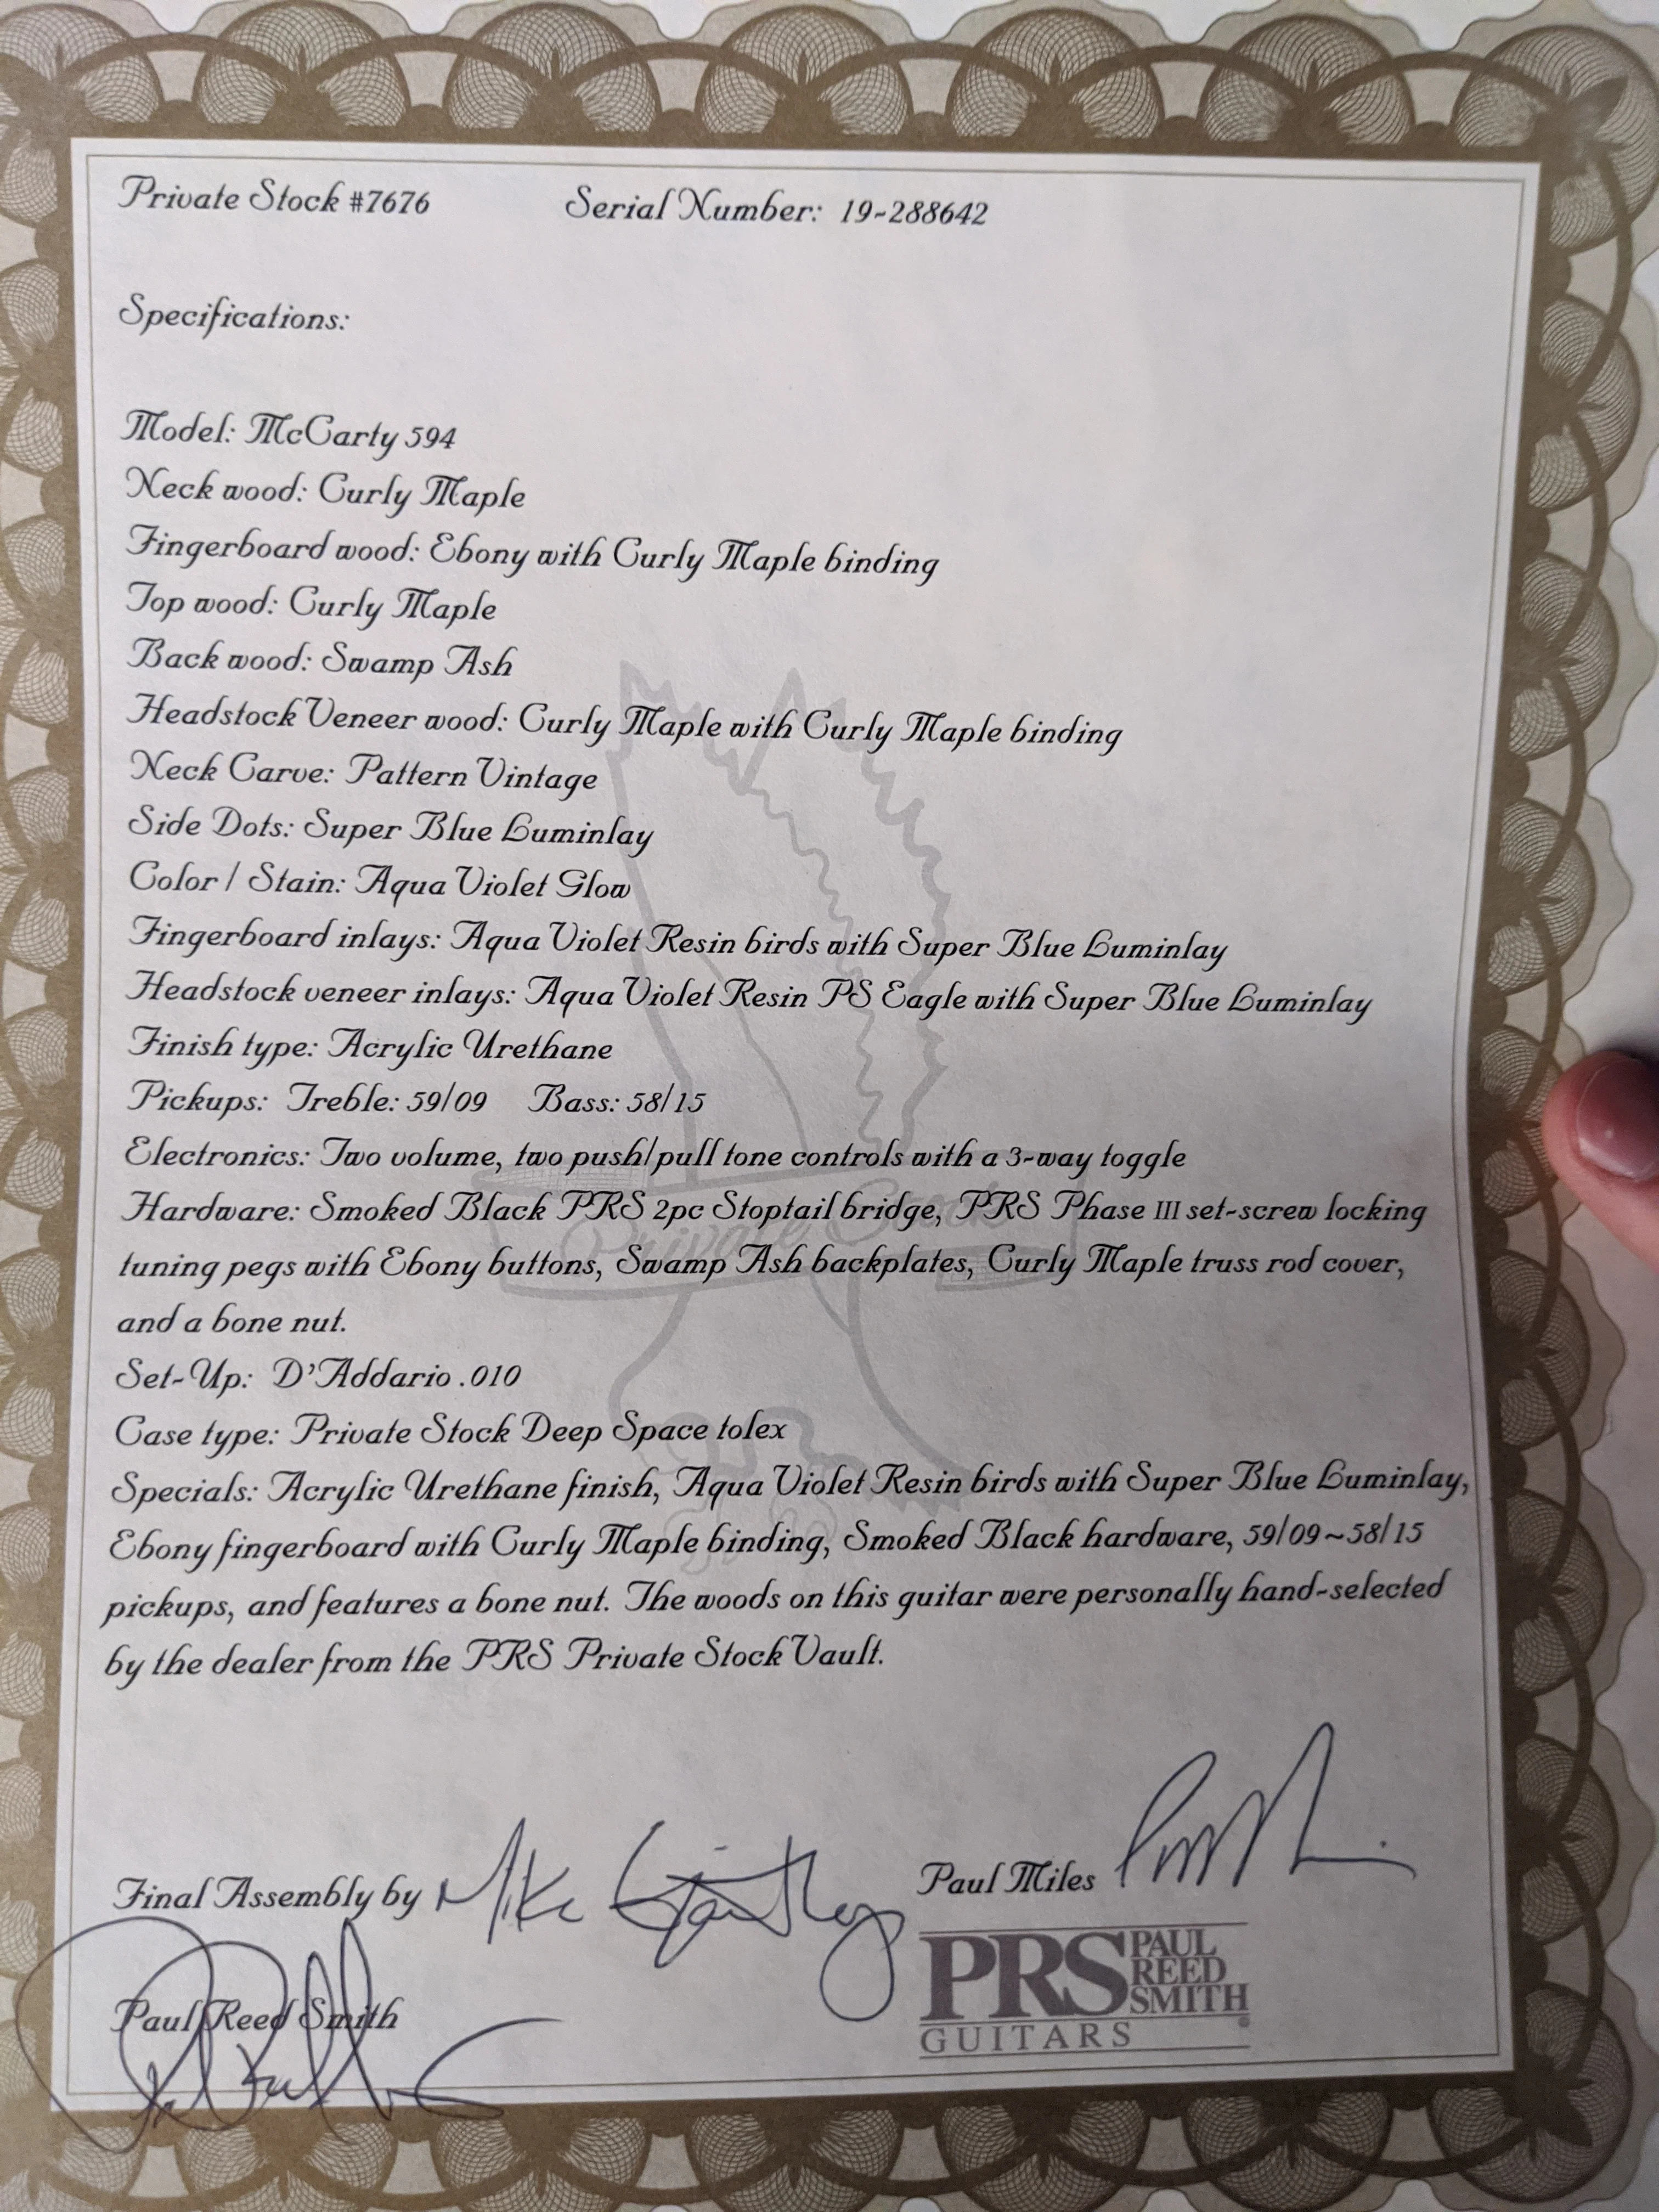 Private Stock #7676 Serial Number: 19-288642
Specifications:
Model: McCarty 594
Neck wood: Curly Maple
Fingerboard wood: Ebony with Curly Maple binding
Top wood: Curly Maple
Back wood: Swamp Ash
Headstock Veneer wood: Curly Maple with Curly Maple binding
Neck Carve: Pattern Vintage
Side Dots: Super Blue Luminlay
Color / Stain: Aqua Violet Glow
Fingerboard inlays: Aqua Violet Resin birds with Super Blue Luminlay
Headstock veneer inlays: Aqua Violet Resin PS Eagle with Super Blue Luminlay
Finish type: Acrylic Urethane
Pickups: Treble: 59/09 Bass: 58/15
Electronics: Two volume, two push/pull tone controls with a 3-way toggle
Hardware: Smoked Black PRS 2pc Stoptail bridge, PRS Phase III set-screw locking
tuning pegs with Ebony buttons, Swamp Ash backplates, Curly Maple truss rod cover,
and a bone nut.
Set-Up: D'Addario .010
Case type: Private Stock Deep Space tolex
Specials: Acrylic Urethane finish, Aqua Violet Resin birds with Super Blue Luminlay,
Ebony fingerboard with Curly Maple binding, Smoked Black hardware, 59/09~58/15
pickups, and features a bone nut. The woods on this guitar were personally hand-selected
by the dealer from the PRS Private Stock Vault.
Final Assembly by Mike
Paul Miles
Paul Reed Smith
PRS PAUL REED SMITH
GUITARS